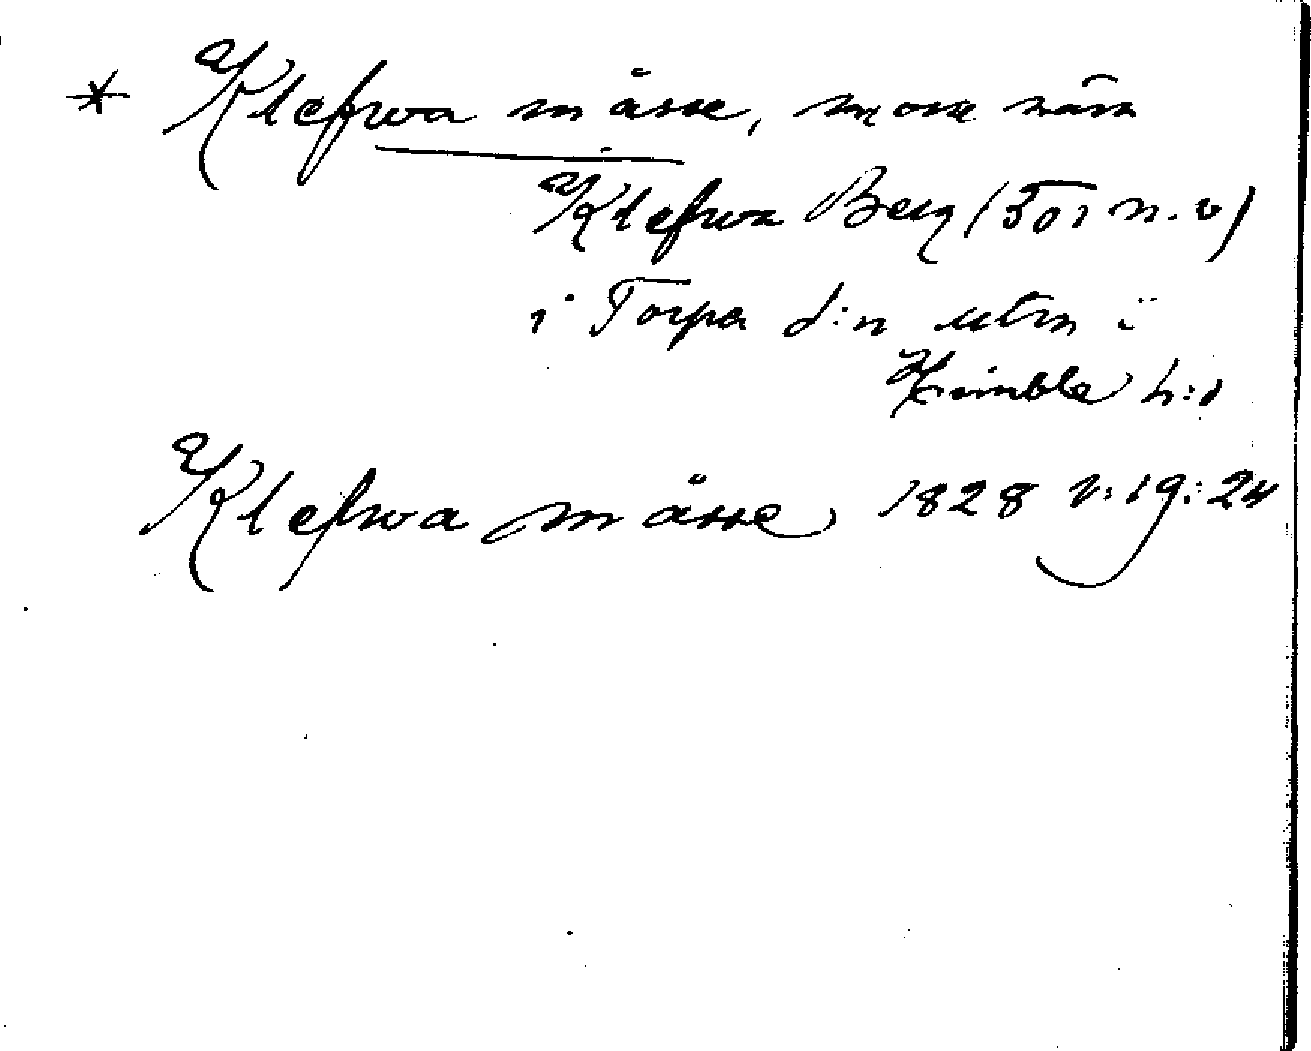 * Klefwa måsse, mosse nära
Klefwa Berg (Tor n.v)
i Torpa s:n utm i
Himble h:d
Klefwa måsse 1828 v:19:24